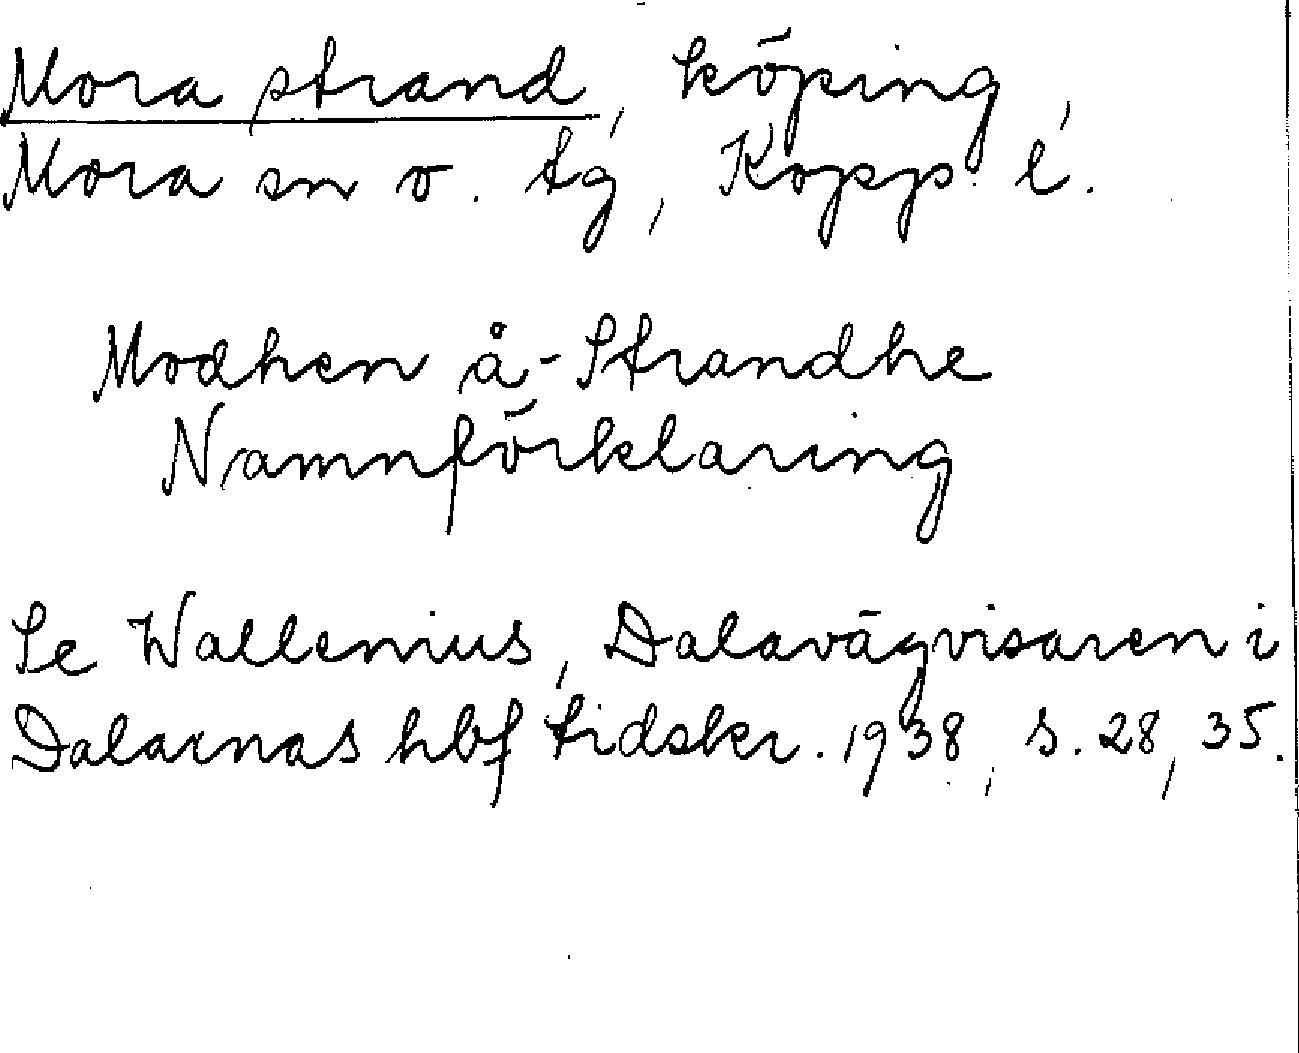 Mora strand, köping,
Mora sn o. tg, Kopp. l.
Modhen å-Strandhe
Namnförklaring
Se Wallenius, Dalavägvisaren i
Dalarnas hbf tidskr. 1938, s. 28, 35.